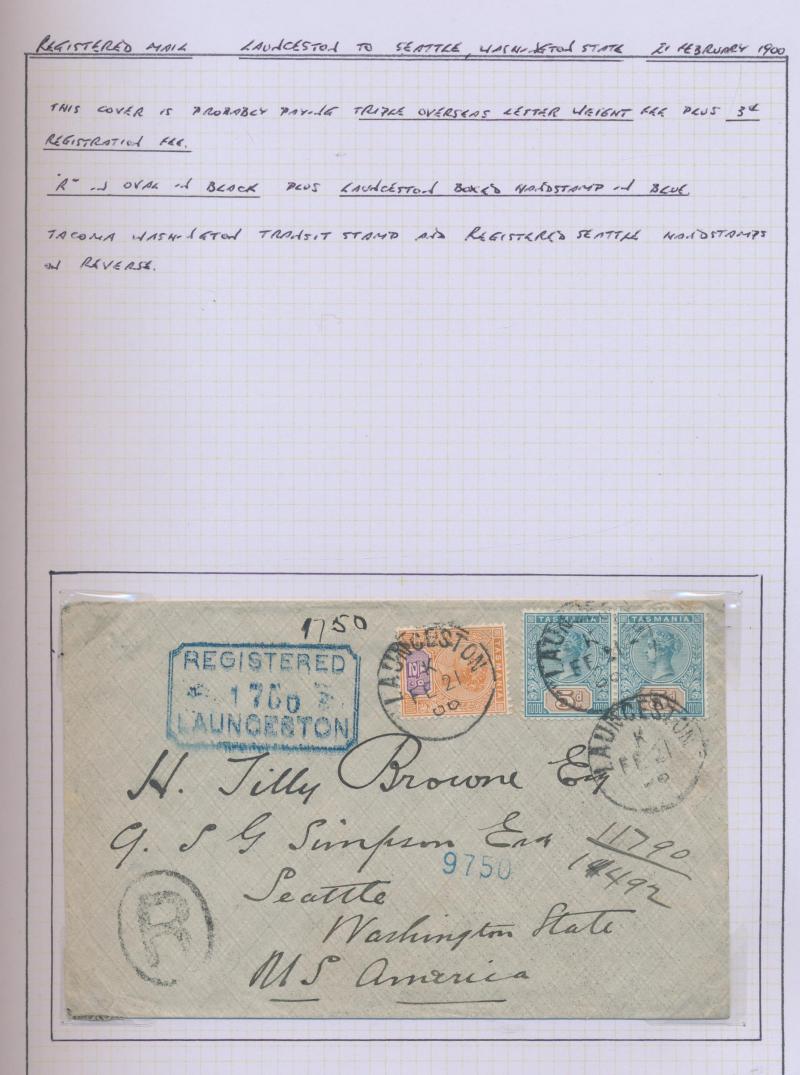 REGISTERED MAIL LAUNCESTON TO SEATTLE, WASHINGTON STATE 21 FEBRUARY 1900
THIS COVER IS PROBABLY PAYING TRIPLE OVERSEAS LETTER WEIGHT FEE PLUS 3d
REGISTRATION FEE.
"R" IN OVAL IN BLACK PLUS LAUNCESTON BOXED HANDSTAMP IN BLUE.
TACOMA WASHINGTON TRANSIT STAMP AND REGISTERED SEATTLE HANDSTAMPS
ON REVERSE.
1750
REGISTERED
LAUNCESTON
LAUNCESTON
K
FE 21
TASMANIA
TASMANIA TASMANIA
LAUNCESTON
K
FE 21
5d
LAUNCESTON
K
FE 21
H. Tilly Browne Esq
S G Simpson Esq
11790
9750
Seattle
R
Washington State
U S America